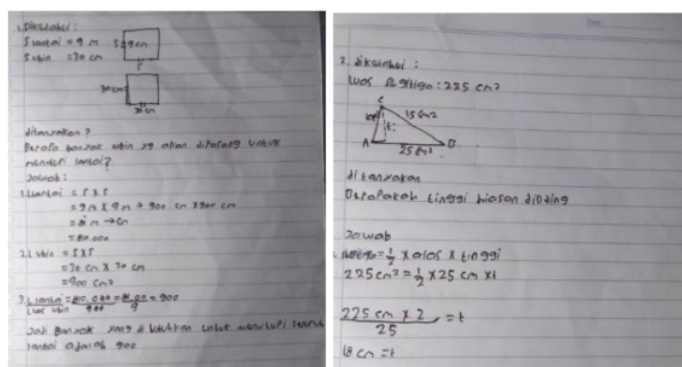 1. Diketahui :
S lantai = 9 m
S = 9 cm
S ubin = 30 cm
S
30 cm
30 cm
ditanyakan ?
Berapa banyak ubin yg akan dipasang untuk
menutupi lantai?
Jawab :
1. L lantai = S x S
= 9 m x 9 m → 900 cm x 900 cm
= m → cm
2. L ubin = S x S
= 30 cm x 30 cm
= 900 cm2
3. L lantai = = = 900
Luas ubin 900 9
Jadi Banyak yang di butuhkan untuk menutupi
lantai adalah 900
2. diketahui :
Luas : 225 cm2
C
15 cm2
t:
A B
25 cm2
ditanyakan
Berapakah tinggi hiasan dinding
Jawab
= 1/2 x alas x tinggi
225 cm2 = 1/2 x 25 cm x t
225 cm x 2 = t
25
18 cm = t